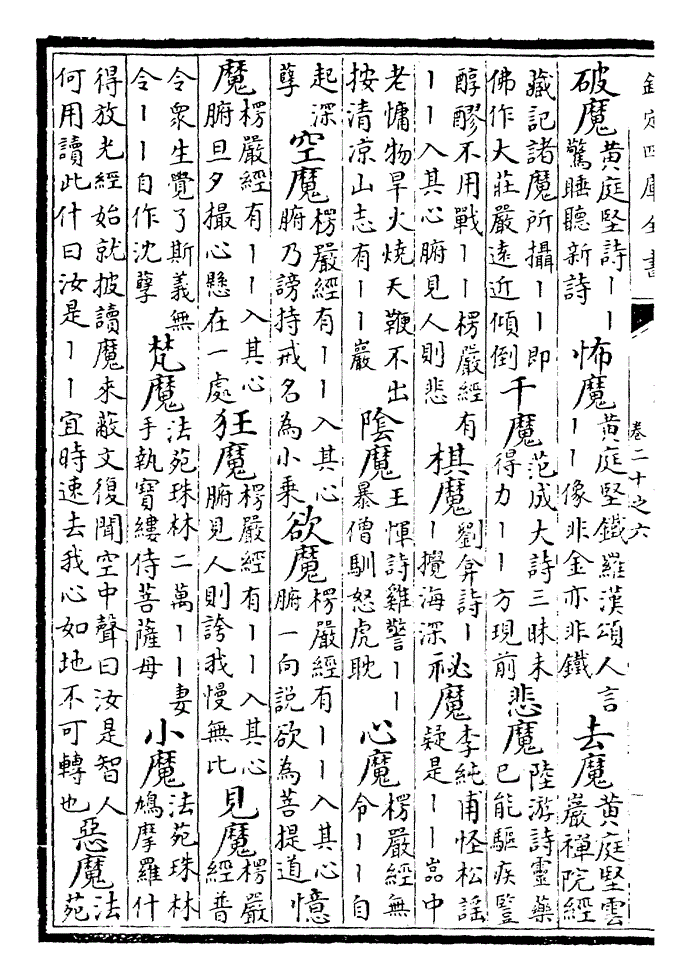 欽定四庫全書 卷二十之六
破魔黄庭堅詩丨丨驚睡聽新詩怖魔黄庭堅鐵羅漢頌人言丨丨像非金亦非鐵去魔黄庭堅雲巖禪院經
藏記諸魔所攝丨丨即佛作大莊嚴遠近傾倒千魔范成大詩三昧未得力丨丨方現前悲魔陸游詩靈藥已能驅疾豎
醇醪不用戰丨丨楞嚴經有丨丨入其心腑見人則悲棋魔劉弇詩丨丨攪海深祕魔李純甫怪松謡疑是丨丨嵓中
老慵物旱火燒天鞭不出按清凉山志有丨丨巖陰魔王惲詩雞警丨丨暴僧馴怒虎眈心魔楞嚴經無令丨丨自
起深孽空魔楞嚴經有丨丨入其心腑乃謗持戒名為小乗欲魔楞嚴經有丨丨入其心腑一向説欲為菩提道憶
魔楞嚴經有丨丨入其心腑旦夕撮心懸在一處狂魔楞嚴經有丨丨入其心腑見人則誇我慢無比見魔楞嚴經普
令衆生覺了斯義無令丨丨自作沈孽梵魔法苑珠林二萬丨丨妻手執寳縷侍菩薩母小魔法苑珠林鳩摩羅什
得放光經始就披讀魔來蔽文復聞空中聲曰汝是智人何用讀此什曰汝是丨丨宜時速去我心如地不可轉也惡魔法苑